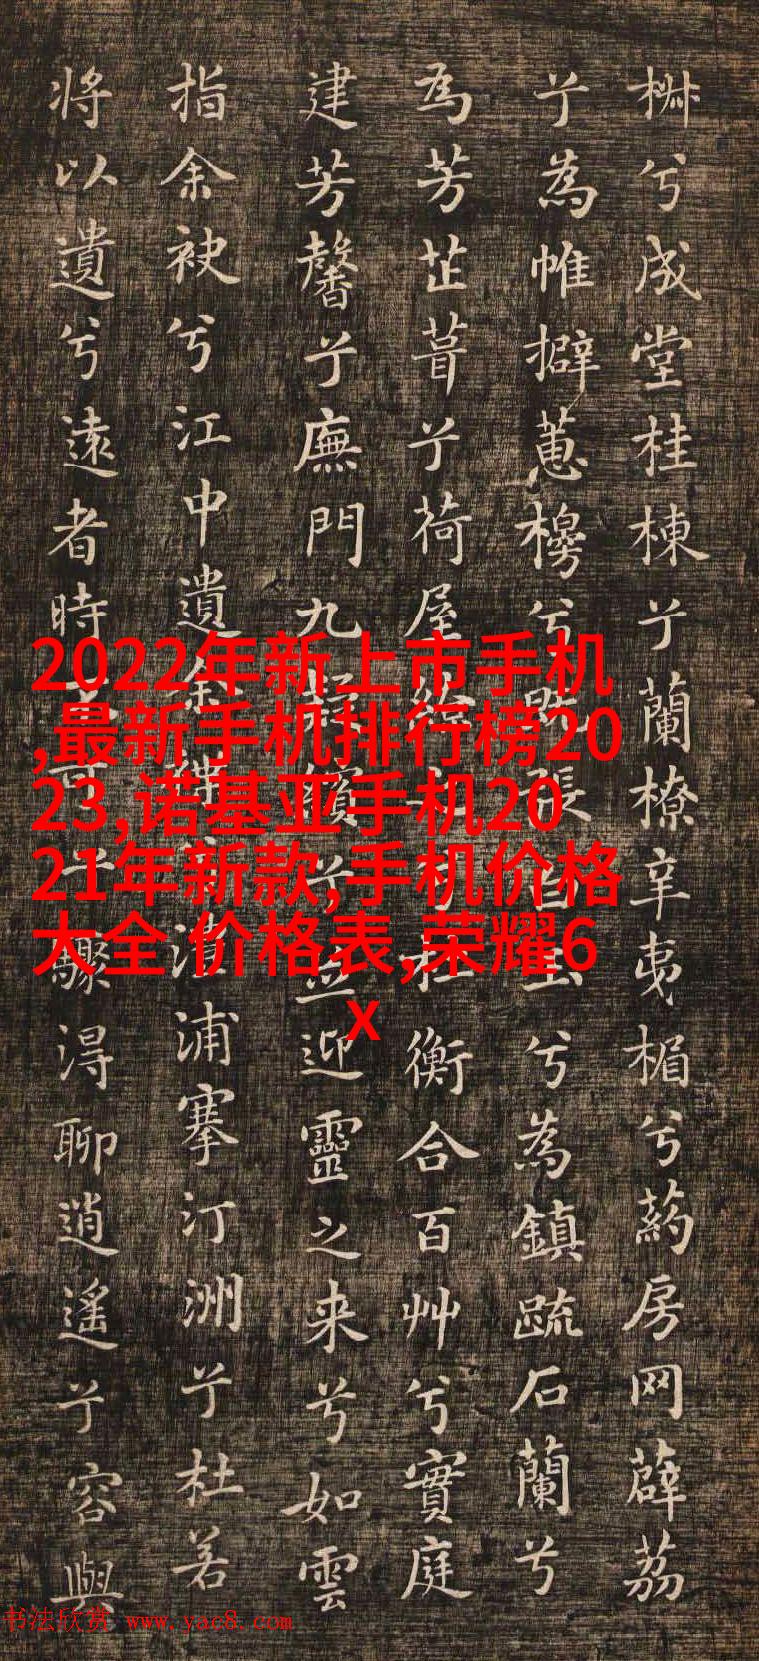 椒兮成堂桂棟兮蘭橑辛夷楣兮葯房网薜荔
兮為帷擗蕙櫋兮既張白玉兮為鎮疏石蘭兮
為芳芷葺兮荷屋繚兮杜衡合百艸兮實庭
建芳馨兮廡門九嶷繽兮並迎靈之来兮如雲
捐余袂兮江中遺余褋兮浦搴汀洲兮杜若
将以遺兮遠者時不可兮驟得聊逍遙兮容與
2022年新上市手机
,最新手机排行榜20
23,诺基亚手机20
21年新款,手机价格
大全 价格表,荣耀6
x
书法欣赏 www.yac8.com